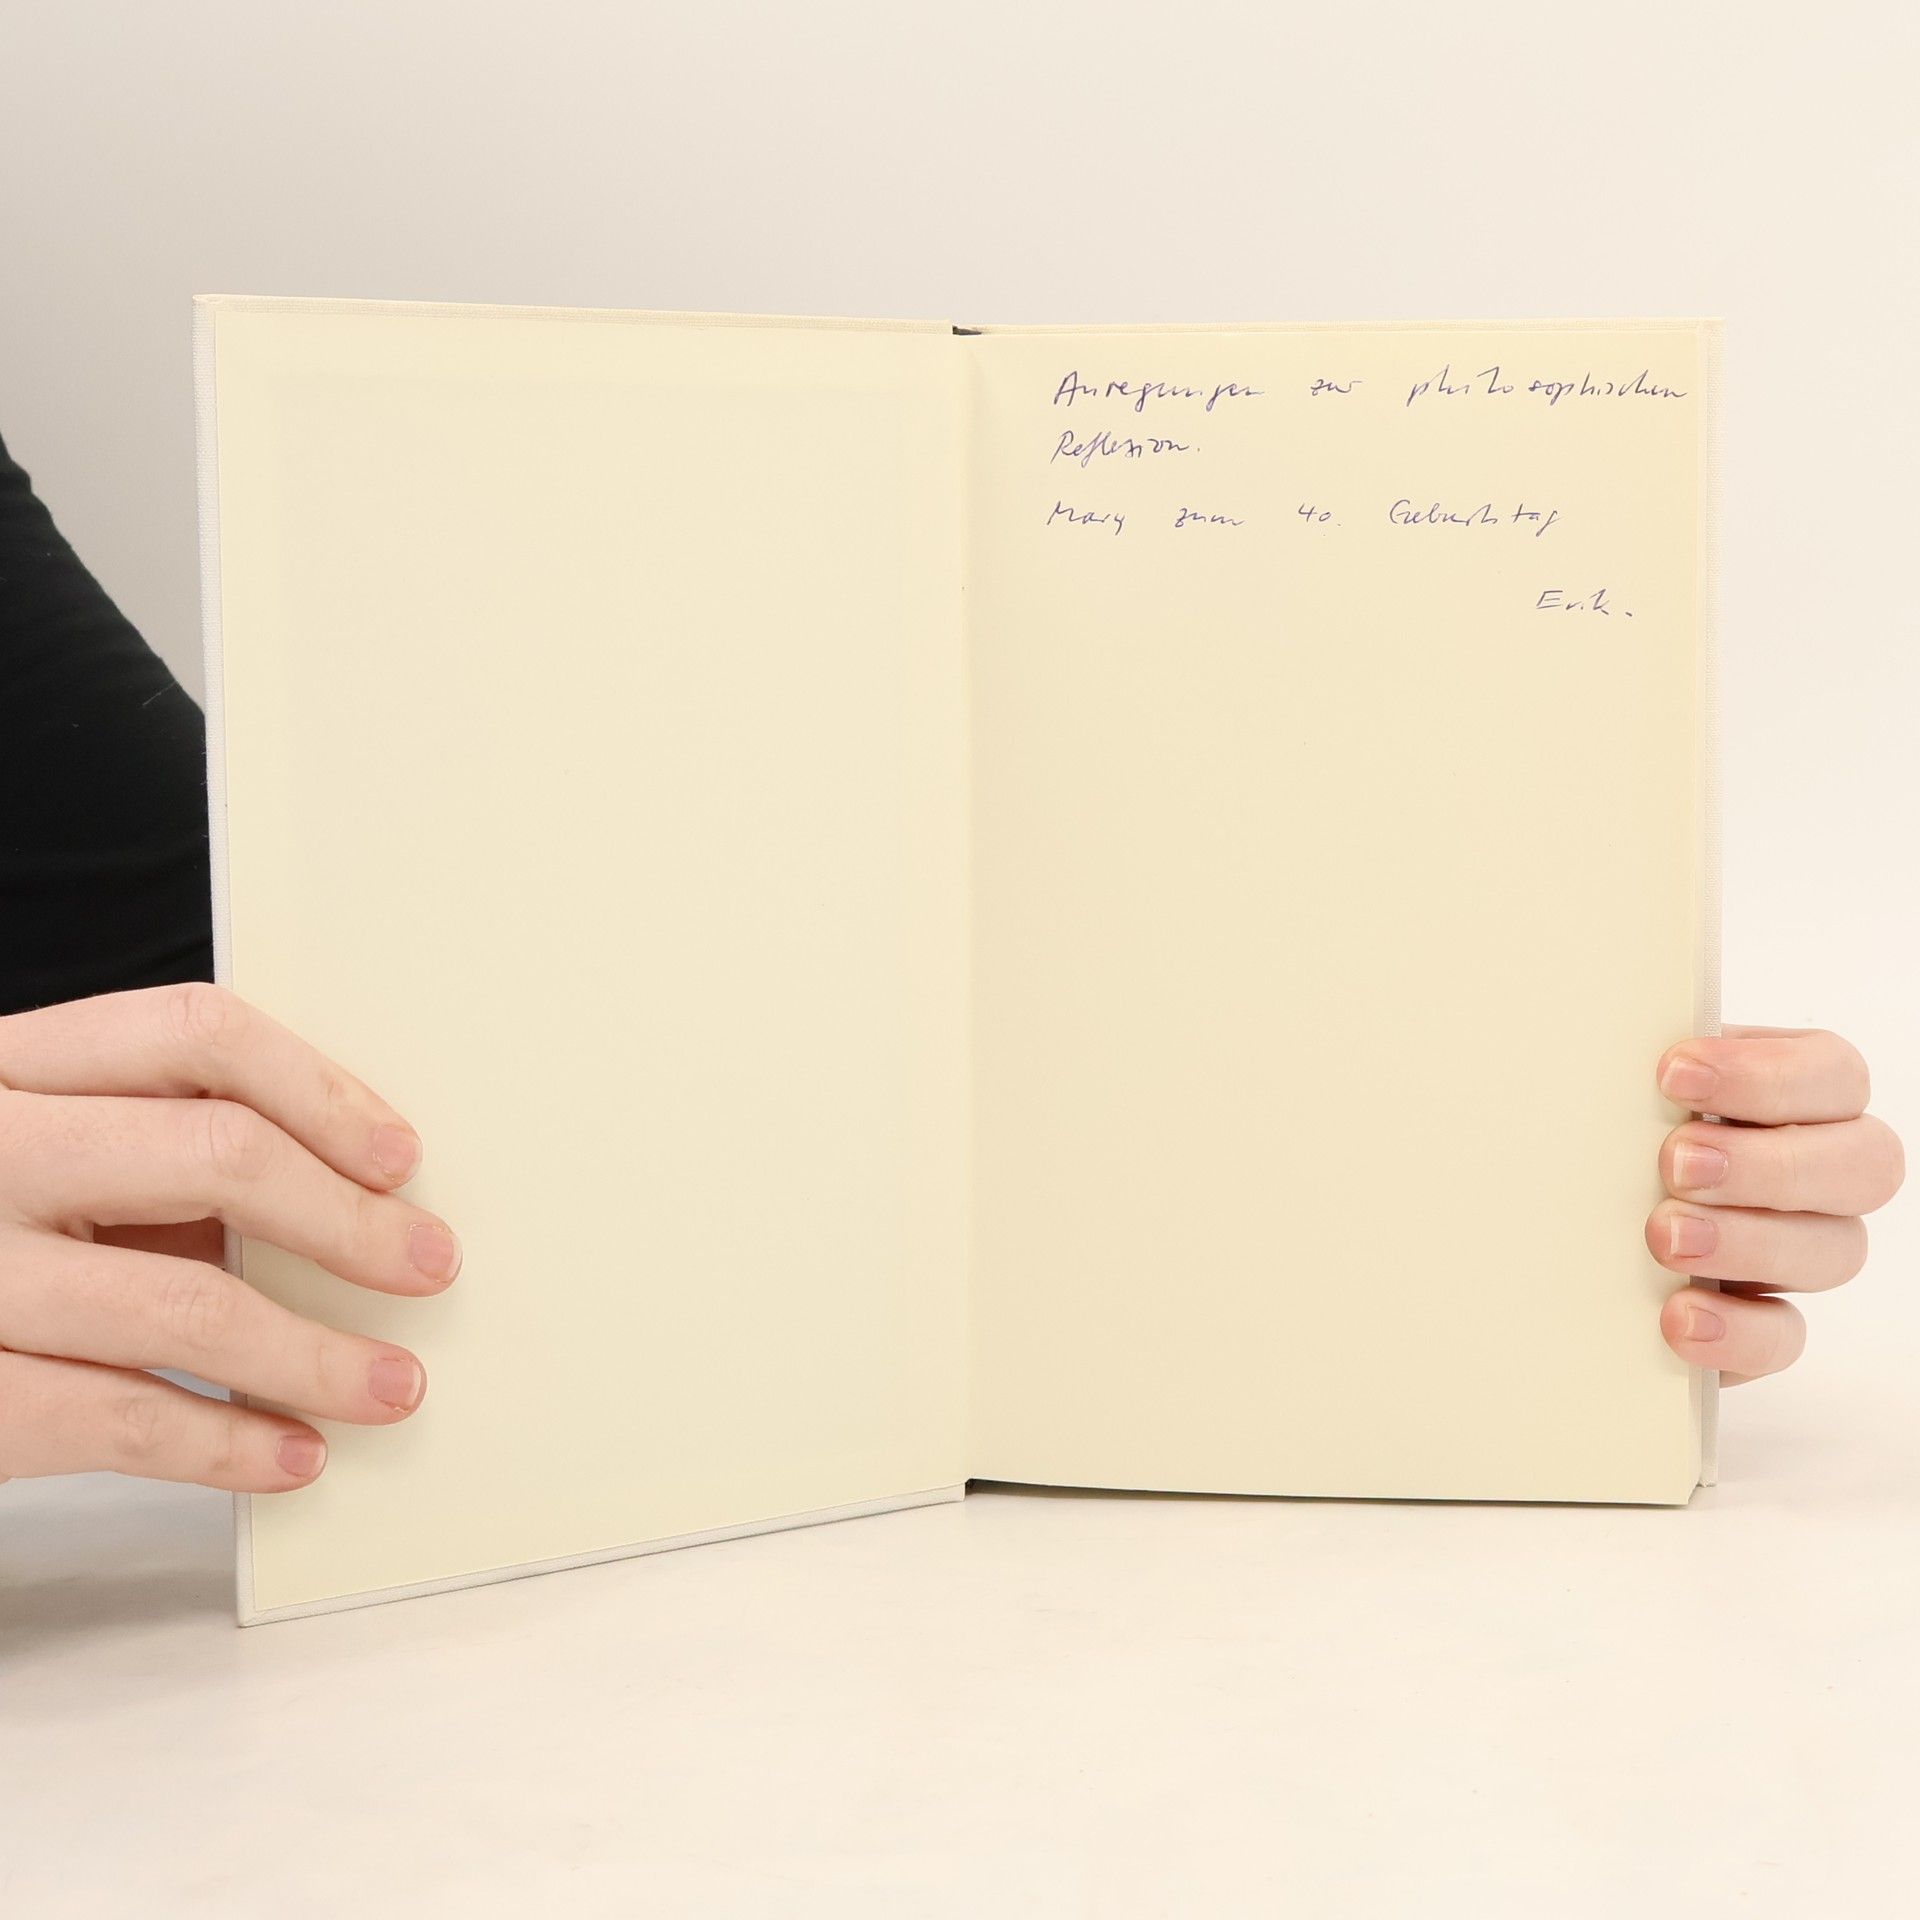 Anregungen zur philosophischen
Reflexion.
Mary zum 40. Geburtstag
Erik.